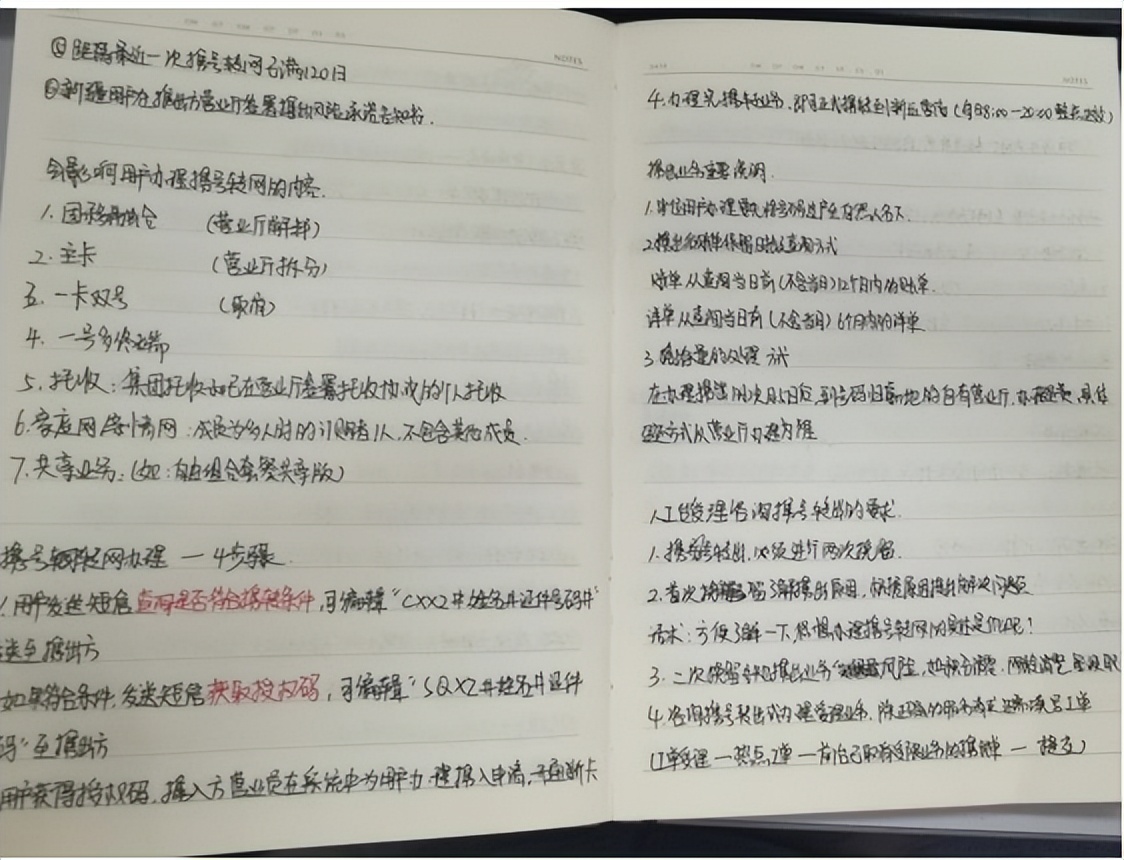 NOTES
⑤距离最近一次携号转网已满120日
⑥新疆用户在携出方营业厅签署携转风险承诺告知书.
会影响用户办理携号转网的内容.
1. 固移融合仓 (营业厅解绑)
2. 主卡 (营业厅拆分)
3. 一卡双号 (取消)
4. 一号多终端
5. 托收:集团托收和已在营业厅签署托收协议的个人托收
6. 家庭网/亲情网:成员为多人时的订购者1人,不包含其他成员.
7. 共享业务:(如:自由组合套餐共享版)
携号转网办理 — 4步骤
1.用户发送短信查询是否符合携转条件,可编辑“CXXZ#姓名#证件号码#
送至携出方
如果符合条件,发送短信获取授权码,可编辑“SQXZ#姓名#证件
码”至携出方
用户获得授权码,携入方营业员在系统中为用户办理携入申请,
NOTES
4.办理完携转业务,即可正式携转到新运营商(每日8:00—20:00整点生效)
携出业务重要说明.
1.单位用户办理要将号码过户至自然人名下.
2.携出后账单保留日期及查询方式
账单从查询当日前(不含当月)12个月内的账单.
详单从查询当日前(不含当月)6个月内的详单
3.的处理方式
在办理携出的次月日后,到号码归属地的自有营业厅,办理退费,具体
方式以营业厅办理为准
人工台受理咨询携号转出的要求.
1.携号转出,必须进行两次挽留.
2.首次挽留了解携出原因,依据原因提出解决问题
话术:方便了解一下,您想办理携号转网的具体是什么呢?
3.二次挽留告知携出业务风险,如积分清零,
4.咨询携号转出或办理受理业务,
(工单受理—热点工单—前台已取消受限业务的携转—提交)